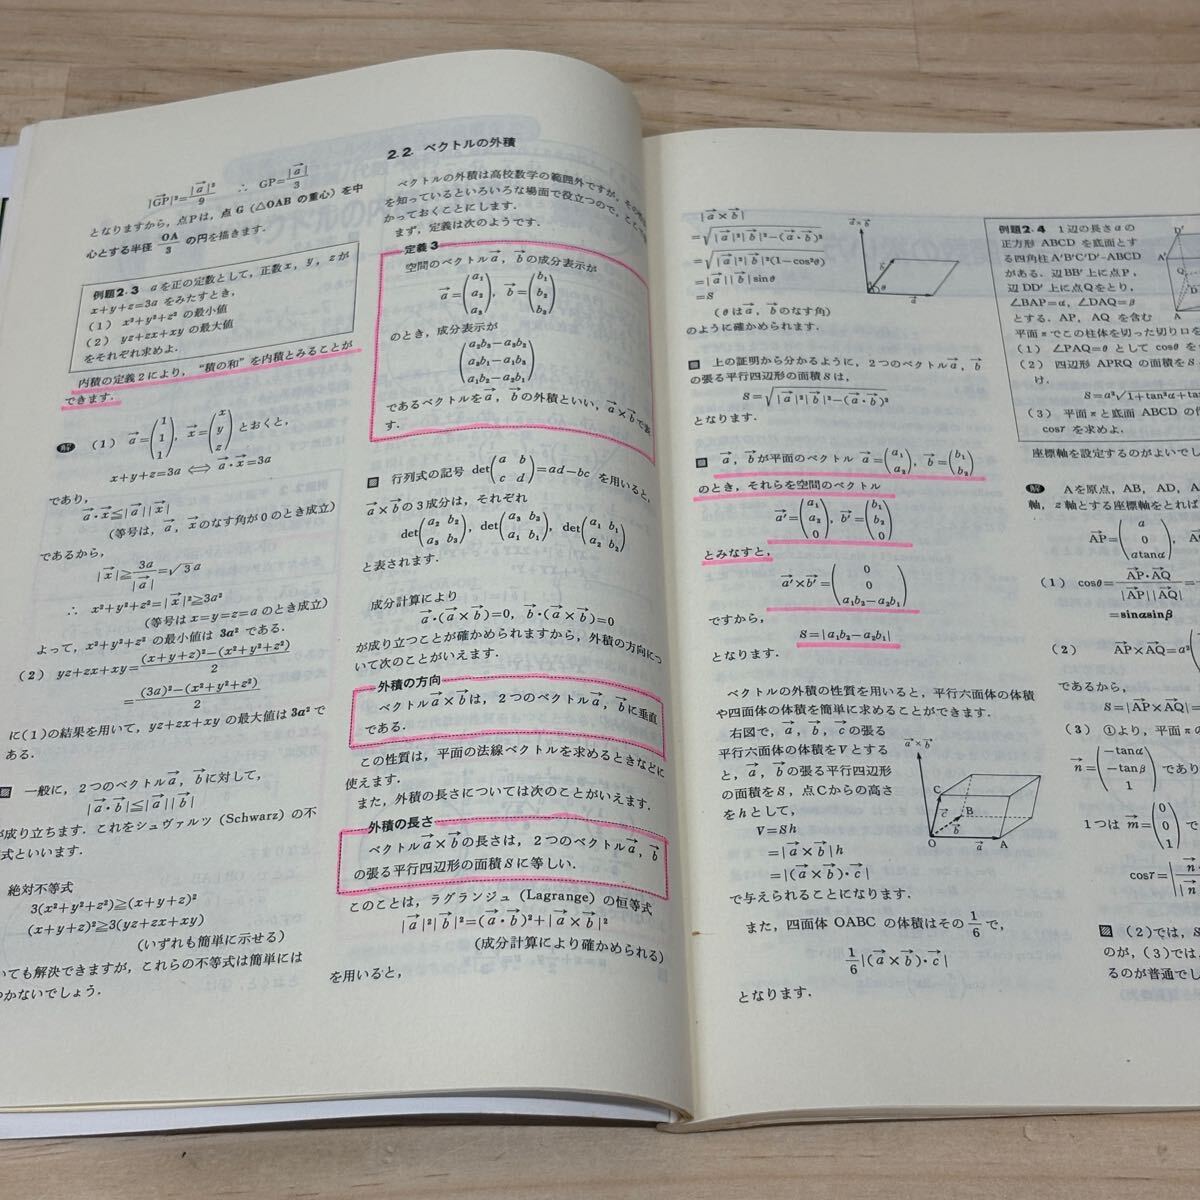 |GP⃗|²=|a⃗|²/9 ∴ GP=|a⃗|/3
となりますから，点Pは，点G（△OABの重心）を中
心とする半径 OA/3 の円を描きます．
例題2･3 aを正の定数として，正数x，y，zが
x+y+z=3a をみたすとき，
(1) x²+y²+z² の最小値
(2) yz+zx+xy の最大値
をそれぞれ求めよ．
内積の定義2により，“積の和”を内積とみることが
できます．
解 (1) a⃗=(1 1 1)，x⃗=(x y z) とおくと，
x+y+z=3a ⟺ a⃗･x⃗=3a
であり，
a⃗･x⃗≦|a⃗||x⃗|
（等号は，a⃗，x⃗のなす角が0のとき成立）
であるから，
|x⃗|≧3a/|a⃗|=√3a
∴ x²+y²+z²=|x⃗|²≧3a²
（等号はx=y=z=aのとき成立）
よって，x²+y²+z² の最小値は 3a² である．
(2) yz+zx+xy=((x+y+z)²−(x²+y²+z²))/2
=((3a)²−(x²+y²+z²))/2
に(1)の結果を用いて，yz+zx+xy の最大値は 3a² で
ある．
一般に，2つのベクトルa⃗，b⃗に対して，
|a⃗･b⃗|≦|a⃗||b⃗|
が成り立ちます．これをシュヴァルツ（Schwarz）の不
式といいます．
絶対不等式
3(x²+y²+z²)≧(x+y+z)²
(x+y+z)²≧3(yz+zx+xy)
（いずれも簡単に示せる）
いても解決できますが，これらの不等式は簡単には
つかないでしょう．
2･2 ベクトルの外積
ベクトルの外積は高校数学の範囲外ですが，その
を知っているといろいろな場面で役立つので，ここで
かっておくことにします．
まず，定義は次のようです．
定義3
空間のベクトルa⃗，b⃗の成分表示が
a⃗=(a₁ a₂ a₃)，b⃗=(b₁ b₂ b₃)
のとき，成分表示が
(a₂b₃−a₃b₂ a₃b₁−a₁b₃ a₁b₂−a₂b₁)
であるベクトルをa⃗，b⃗の外積といい，a⃗×b⃗で表
す．
行列式の記号 det(a b c d)=ad−bc を用いると，
a⃗×b⃗の3成分は，それぞれ
det(a₂ b₂ a₃ b₃)，det(a₃ b₃ a₁ b₁)，det(a₁ b₁ a₂ b₂)
と表されます．
成分計算により
a⃗･(a⃗×b⃗)=0，b⃗･(a⃗×b⃗)=0
が成り立つことが確かめられますから，外積の方向につ
いて次のことがいえます．
外積の方向
ベクトルa⃗×b⃗は，2つのベクトルa⃗，b⃗に垂直
である．
この性質は，平面の法線ベクトルを求めるときなどに
使えます．
また，外積の長さについては次のことがいえます．
外積の長さ
ベクトルa⃗×b⃗の長さは，2つのベクトルa⃗，b⃗
の張る平行四辺形の面積Sに等しい．
このことは，ラグランジュ（Lagrange）の恒等式
|a⃗|²|b⃗|²=(a⃗･b⃗)²+|a⃗×b⃗|²
（成分計算により確かめられる）
を用いると，
|a⃗×b⃗|
=√(|a⃗|²|b⃗|²−(a⃗･b⃗)²)
=√(|a⃗|²|b⃗|²(1−cos²θ))
=|a⃗||b⃗|sinθ
=S
（θはa⃗，b⃗のなす角）
のように確かめられます．
a⃗×b⃗
b⃗
θ
a⃗
上の証明から分かるように，2つのベクトルa⃗，b⃗
の張る平行四辺形の面積Sは，
S=√(|a⃗|²|b⃗|²−(a⃗･b⃗)²)
となります．
a⃗，b⃗が平面のベクトル a⃗=(a₁ a₂)，b⃗=(b₁ b₂)
のとき，それらを空間のベクトル
a⃗′=(a₁ a₂ 0)，b⃗′=(b₁ b₂ 0)
とみなすと，
a⃗′×b⃗′=(0 0 a₁b₂−a₂b₁)
ですから，
S=|a₁b₂−a₂b₁|
となります．
ベクトルの外積の性質を用いると，平行六面体の体積
や四面体の体積を簡単に求めることができます．
右図で，a⃗，b⃗，c⃗の張る
平行六面体の体積をVとする
と，a⃗，b⃗の張る平行四辺形
の面積をS，点Cからの高さ
をhとして，
V=Sh
=|a⃗×b⃗|h
=|(a⃗×b⃗)･c⃗|
で与えられることになります．
a⃗×b⃗
C
c⃗
B
b⃗
O
a⃗
A
また，四面体 OABC の体積はその 1/6 で，
1/6|(a⃗×b⃗)･c⃗|
となります．
例題2･4 1辺の長さaの
正方形 ABCD を底面とす
る四角柱 A′B′C′D′-ABCD
がある．辺BB′上に点P，
辺DD′上に点Qをとり，
∠BAP=α，∠DAQ=β
とする．AP，AQ を含む
平面πでこの柱体を切った切り口を
(1) ∠PAQ=θ として cosθを
(2) 四辺形 APRQ の面積をS
け，
S=a²√1+tan²α+tan
(3) 平面πと底面 ABCD の
cosγ を求めよ．
D′
A′
Q
D
A
座標軸を設定するのがよいでし
解 Aを原点，AB，AD，A
軸，z軸とする座標軸をとれば
AP⃗=(a 0 atanα)，A
(1) cosθ=AP⃗･AQ⃗/|AP⃗||AQ⃗|
=sinαsinβ
(2) AP⃗×AQ⃗=a²
であるから，
S=|AP⃗×AQ⃗|
(3) ①より，平面πの
n⃗=(−tanα −tanβ 1) であり
1つは m⃗=(0 0 1)
cosγ=
(2)では，S
のが，(3)では，
るのが普通でし